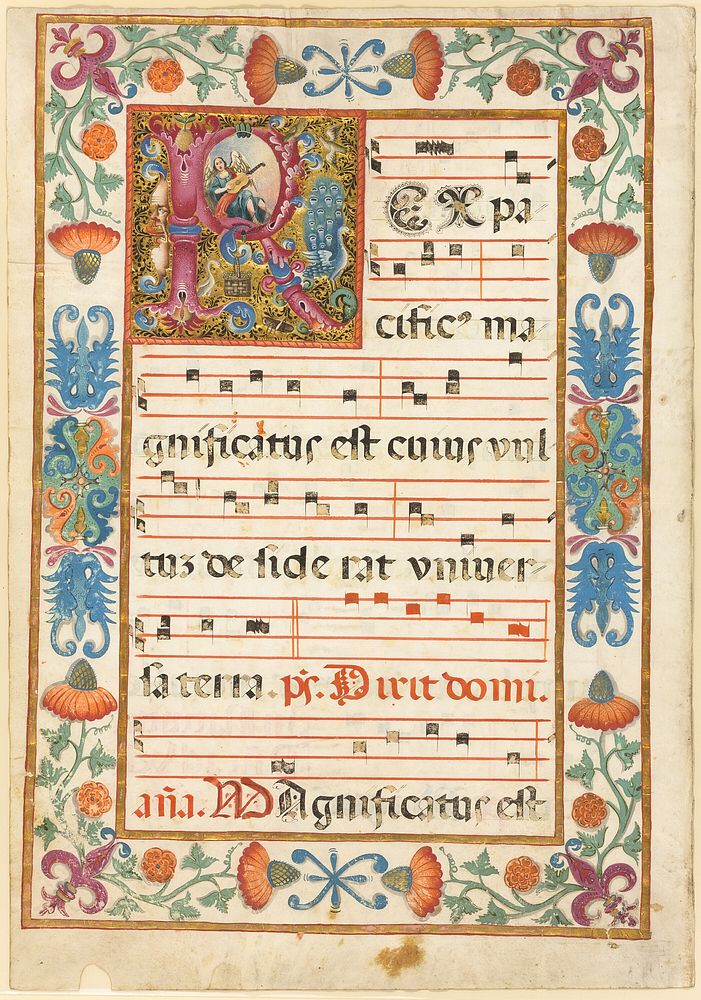 REX pa
cific⁹ ma
gnificatus est cuius vul
tuz de side rat vniuer-
sa terra. ps. Dixit domi.
aña. MAgnificatus est